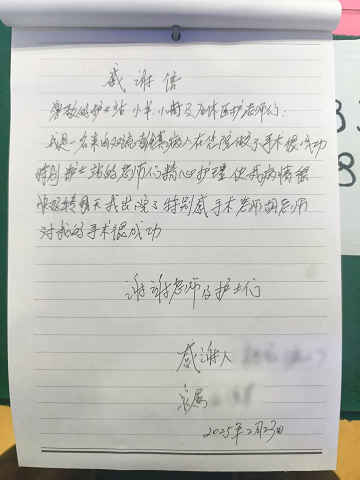 感谢信
尊敬的护士站 小羊、小南及全体医护老师们:
我是一名来自 病人在贵院做了手术很成功
特别护士站的老师们精心护理使我病情很
快好转明天我出院了特别感手术老师胡老师
对我的手术很成功
谢谢老师及护士们
感谢人
家属
2025年2月23日
3
8